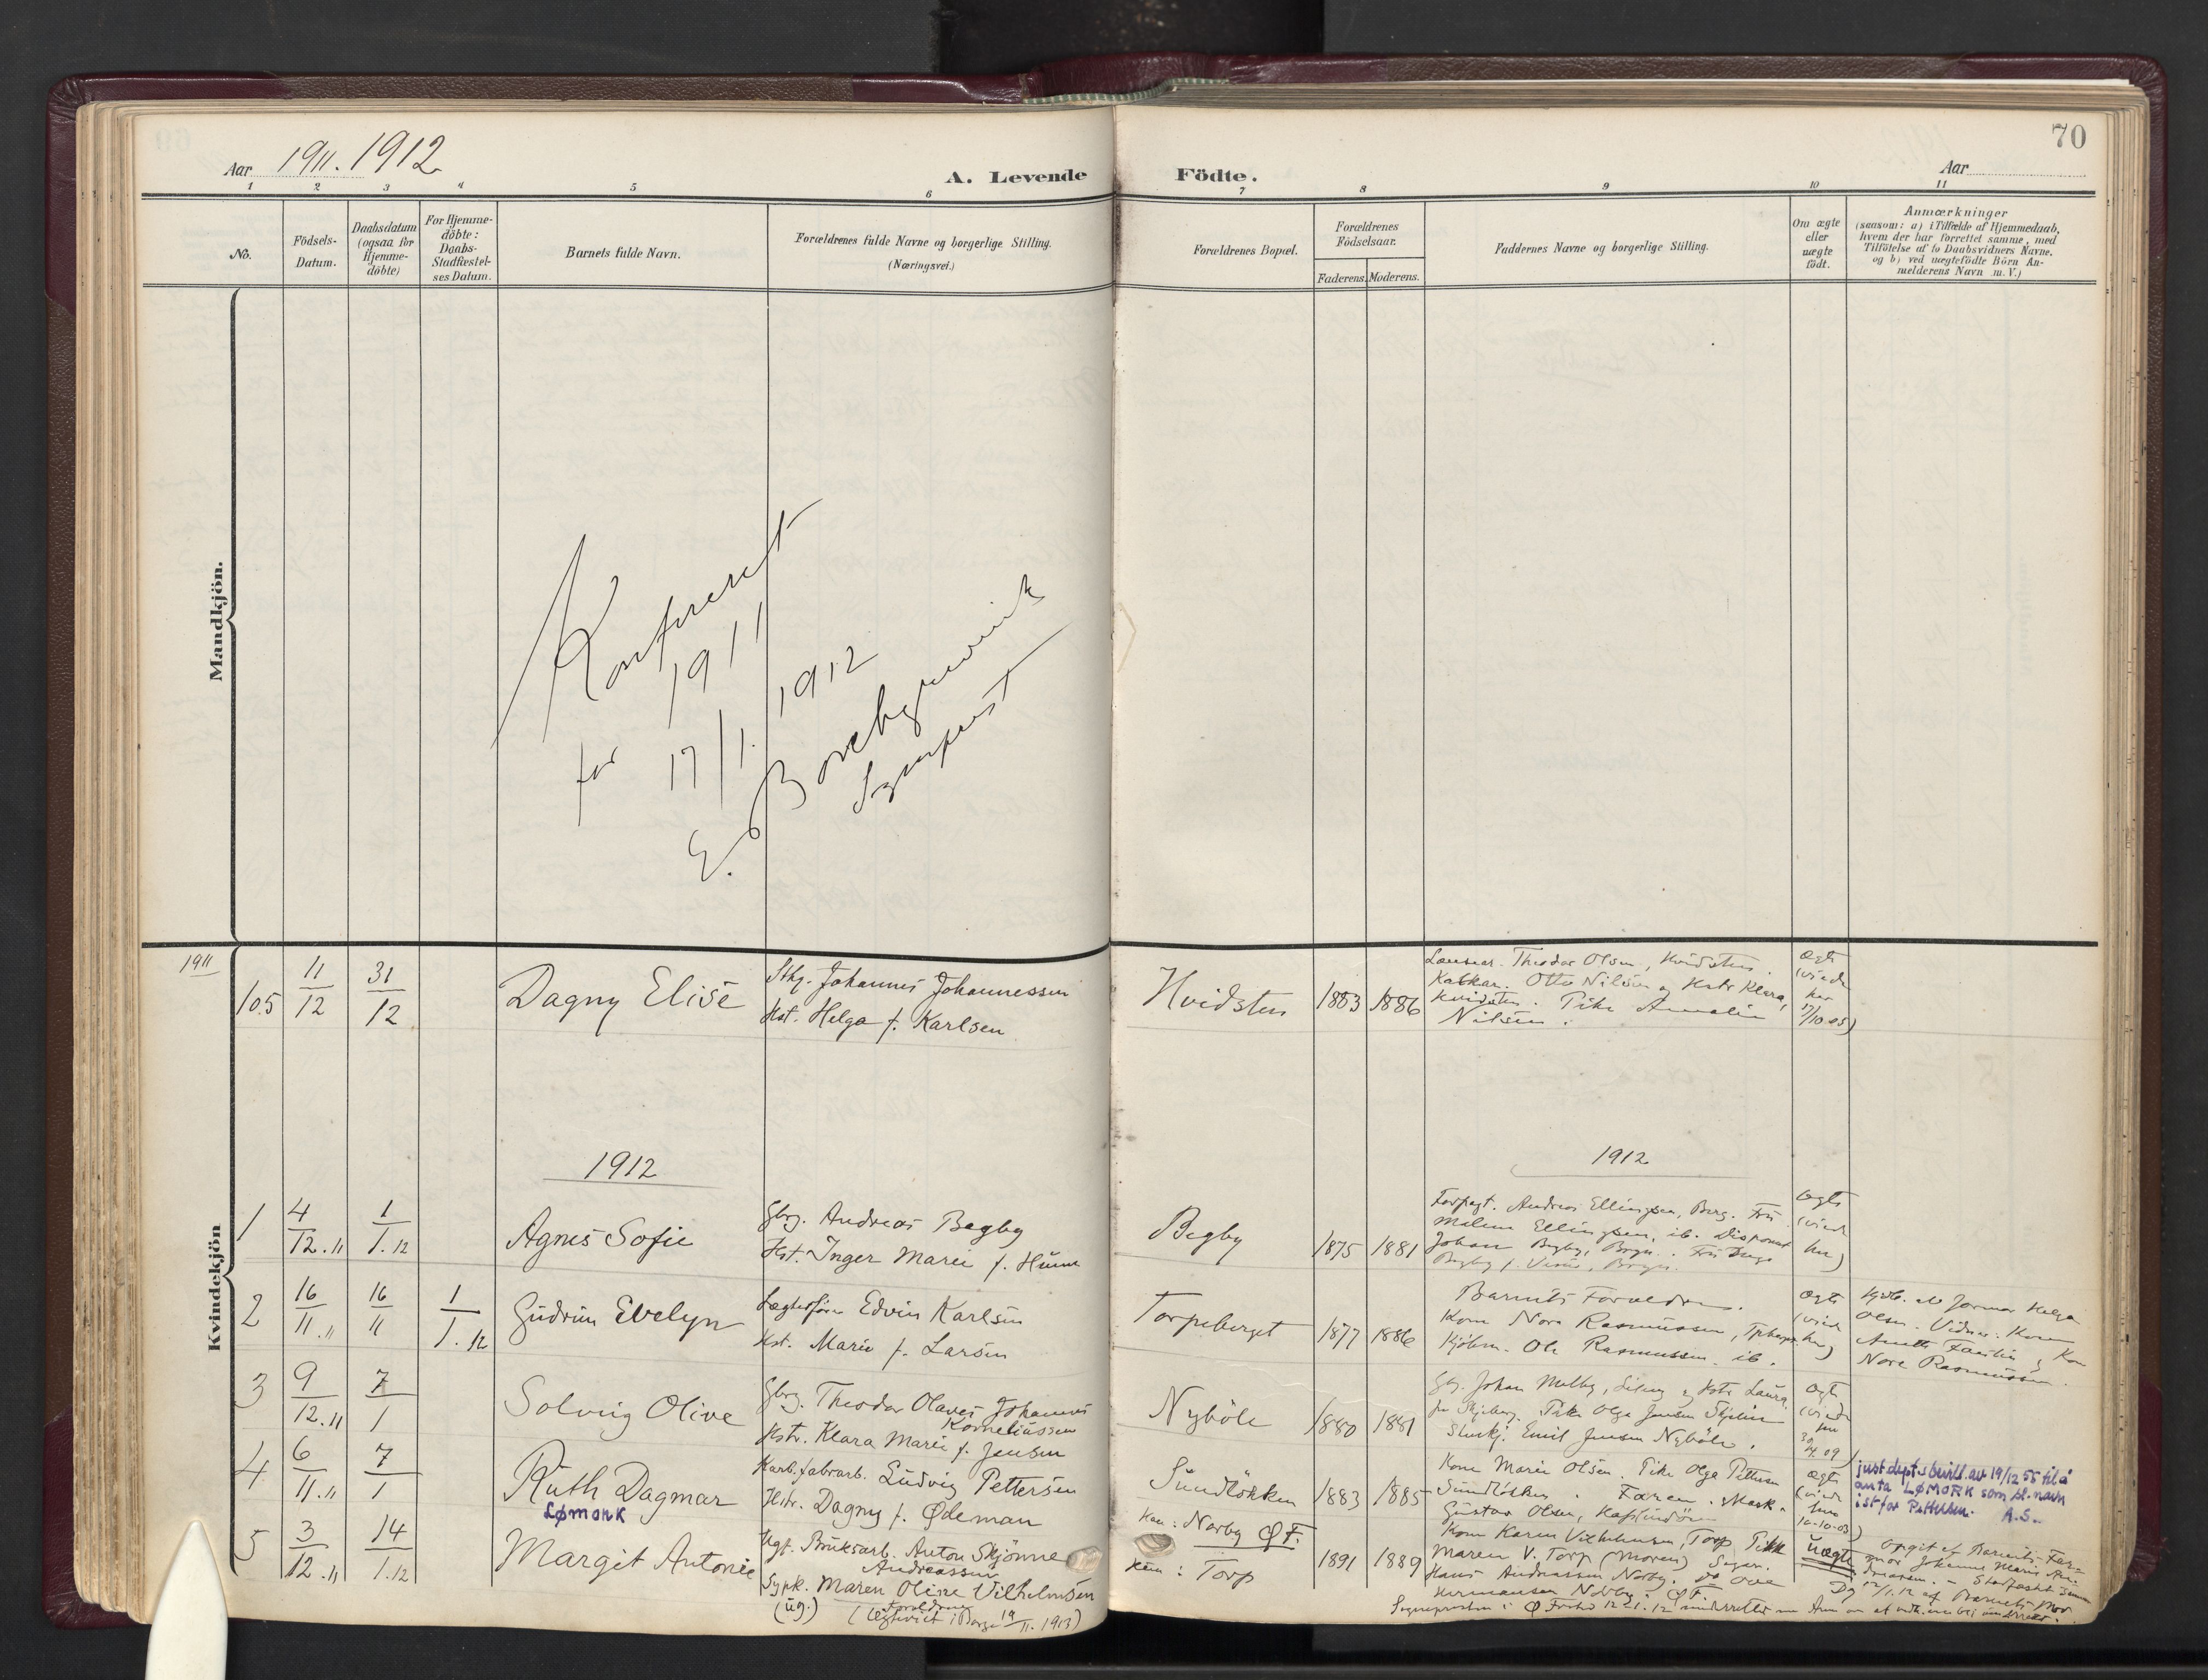 70
Aar 1911. 1912
A. Levende
Födte.
Aar
1 2 3 4 5 6 7 8 9 10 11
No.
Födsels-Datum.
Daabsdatum (ogsaa for Hjemme-döbte)
For Hjemme-döbte: Daabs-Stadfæstel-ses Datum.
Barnets fulde Navn.
Forældrenes fulde Navne og borgerlige Stilling.
(Næringsvei.)
Forældrenes Bopæl.
Forældrenes Födselsaar.
Faderens. Moderens.
Faddernes Navne og borgerlige Stilling.
Om ægte eller uægte födt.
Anmærkninger
(saasom: a) i Tilfælde af Hjemmedaab,
hvem der har forrettet samme, med
Tilföielse af to Daabsvidners Navne,
og b) ved uægtefödte Börn An-
melderens Navn m. V.)
Mandkjön.
Konfereret
for 1911
17/1. 1912
E. Borchgrevink
Sogneprest
Kvindekjön
1911
105
11/12
31/12
Dagny Elise
Johannes Johannessen
Hst. Helga f. Karlsen
Hvidsten
1883 1886
Theodor Olsen, Hvidsten.
Otto Nilsen og Hstr Klara,
Hvidsten. Pike
Nilsen.
ægte
(viede
her
17/10.05)
1912
1912
1
4/12.11
1/1.12
Agnes Sofie
Gbrg. Andreas Begby
Hst. Inger Marie f.
Begby
1875 1881
Forpagt. Andreas Ellingsen, Borg. Fru
Ellingsen, ib. Disponent
Johan Begby, Borge. Fru
Begby f.
ægte
(viede
her)
2
16/11.11
16/11
1/1.12
Gudrun Evelyn
Edvin Karlsen
Hst. Marie f. Larsen
Torpeberget
1877 1886
Barnets Forældre.
Kone Nora Rasmussen,
Kjöbm. Ole Rasmussen ib.
ægte
(viede
her)
Hjdb. af Jormor Helga
Olsen. Vidner: Kone
Nora Rasmussen.
3
9/12.11
7/1
Solveig Olive
Gbrg. Theodor Olaves Johannes
Korneliussen
Hstr. Klara Marie f. Jensen
Nyböle
1880 1881
Gbr. Johan Melby, og Hstr Laura,
Pike Olga Jensen
Emil Jensen Nyböle.
ægte
(viede
4
6/11.11
7/1
Ruth Dagmar
LØMORK
Karb.fabrarb. Ludvig Pettersen
Hstr. Dagny f. Ødeman
Sundlökken
1883 1885
Kone Marie Olsen. Pike Olga Pettersen
Sundlökken. Faren.
Gustav Olsen,
ægte
(viede
10-10-03)
just.dept.s bevill. av 19/12 55 til å
anta LØMORK som sl.navn
ist.for Pettersen. A.S.
5
3/12.11
14/1.12
Margit Antonie
Ugf. Bruksarb. Anton Skjönne
Andreassen
Sypk. Maren Oline Vilhelmsen
(ug.)
(Forældrene ægteviet i Borge 19/11. 1913)
Han: Norby Ø F.
Hun: Torp
1891 1889
Kone Karen Vilhelmsen, Torp. Pike
Maren V. Torp (Moren)
Hans Andreassen Norby.
Hermansen Norby. Ø F.
Uægte
Opgit af Barnets Far-
mor Johanne Marie An-
dreassen.